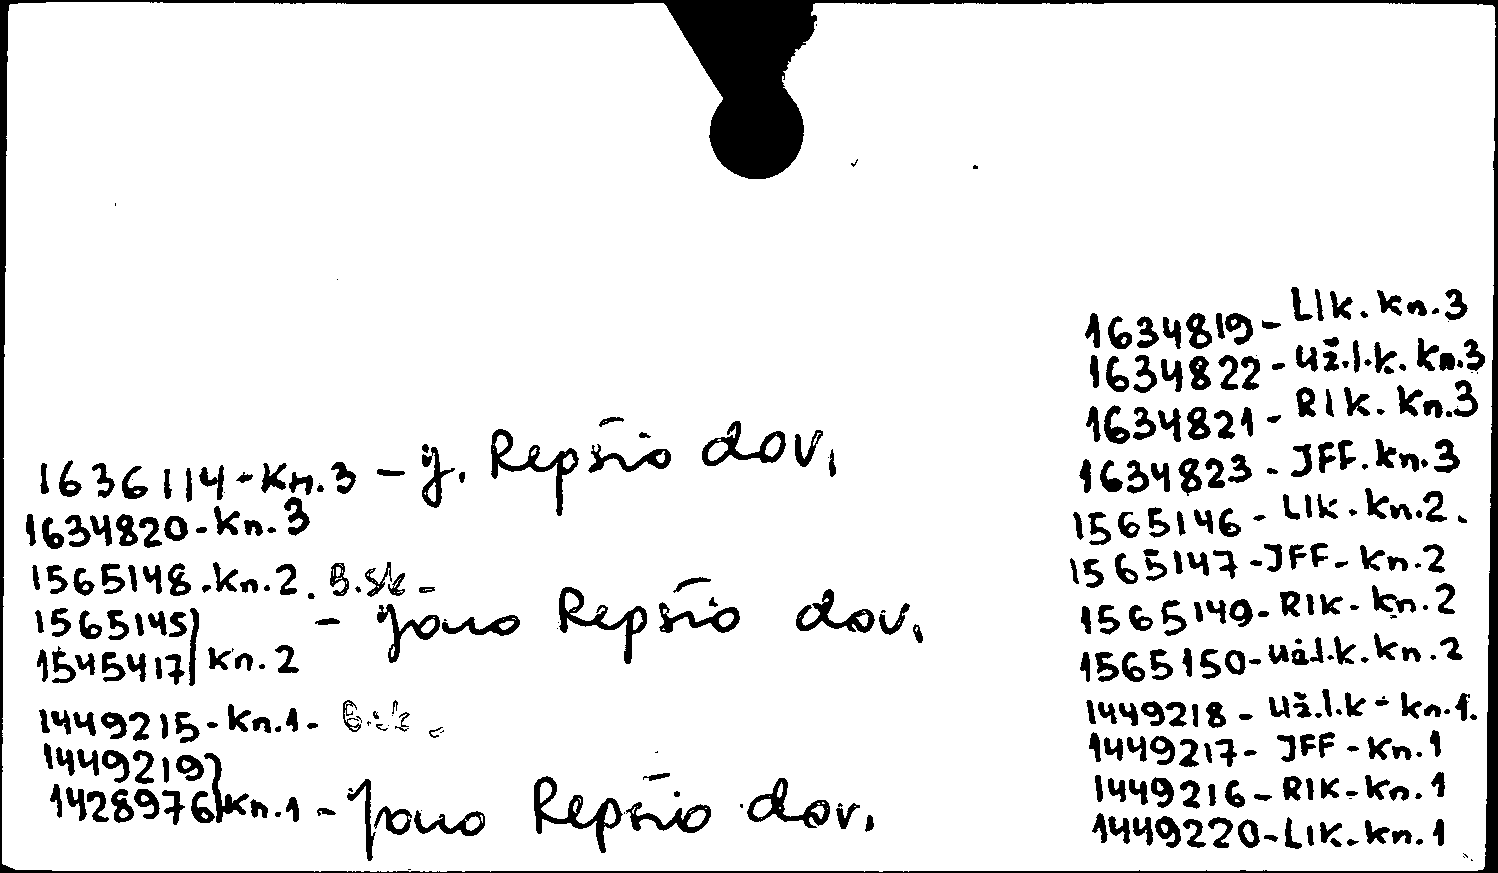 1636114-Kn.3 - J. Repšio dov.
1634820-Kn.3
1565148.Kn.2. B.sk-
1565145
1545417 Kn.2 - Jono Repšio dov.
1449215-Kn.1- B.sk.
1449219
1428976 Kn.1 - Jono Repšio dov.
1634819-LIK.Kn.3
1634822-už.l.k.Kn.3
1634821-RIK.Kn.3
1634823-JFF.Kn.3
1565146-LIK.Kn.2.
1565147-JFF-Kn.2
1565149-RIK-Kn.2
1565150-už.l.k.Kn.2
1449218-už.l.k-Kn.1.
1449217-JFF-Kn.1
1449216-RIK-Kn.1
1449220-LIK-Kn.1